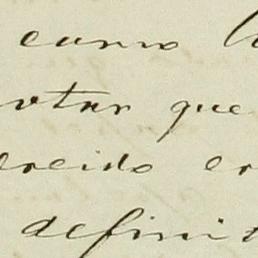 como l
otar que
ercido er
definit